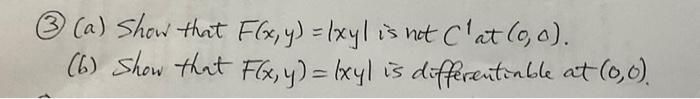 ③ (a) Show that F(x,y) = |xy| is not C¹ at (0,0).
(b) Show that F(x,y) = |xy| is differentiable at (0,0).